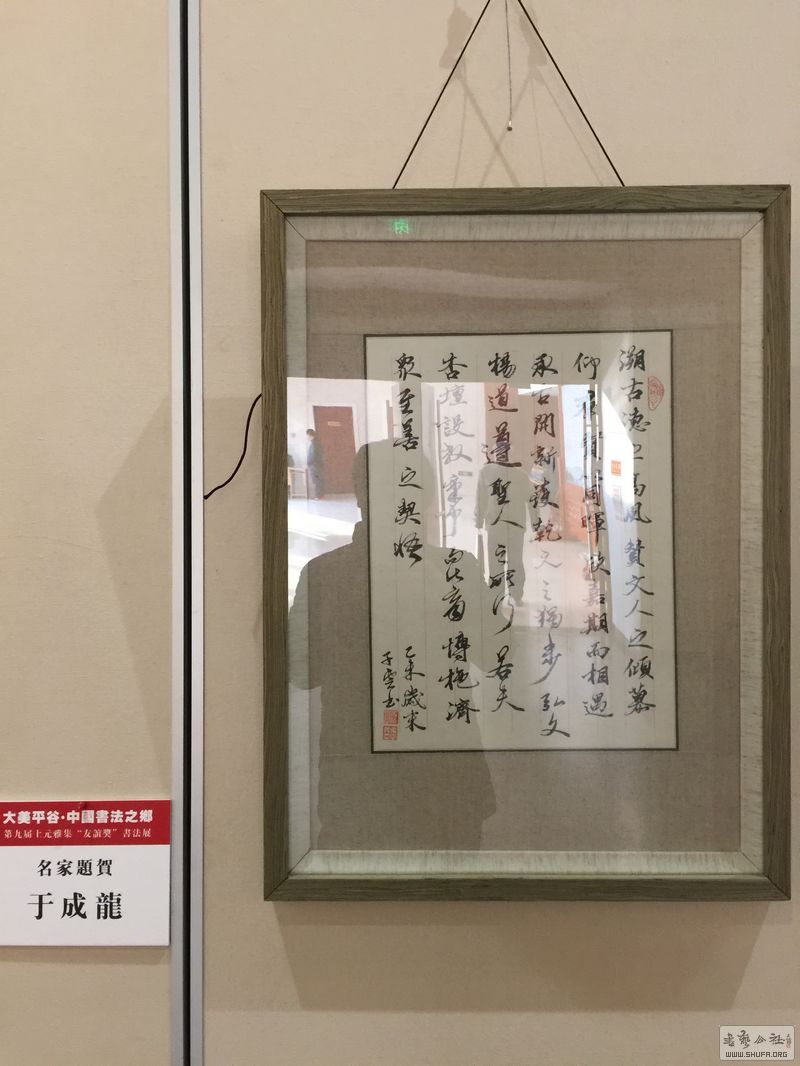 溯古德之高風贊文人之傾慕
仰 賢 同暉 嘉期而相遇
承古開新 乾文之獨步弘文
楊道遵聖人之所行若夫
杏壇設教 育博施濟
眾至善之契悟
乙未歲末
子雲书
大美平谷·中國書法之鄉
第九届上元雅集“友誼獎”書法展
名家題賀
于成龍
書藝公社
WWW.SHUFA.ORG